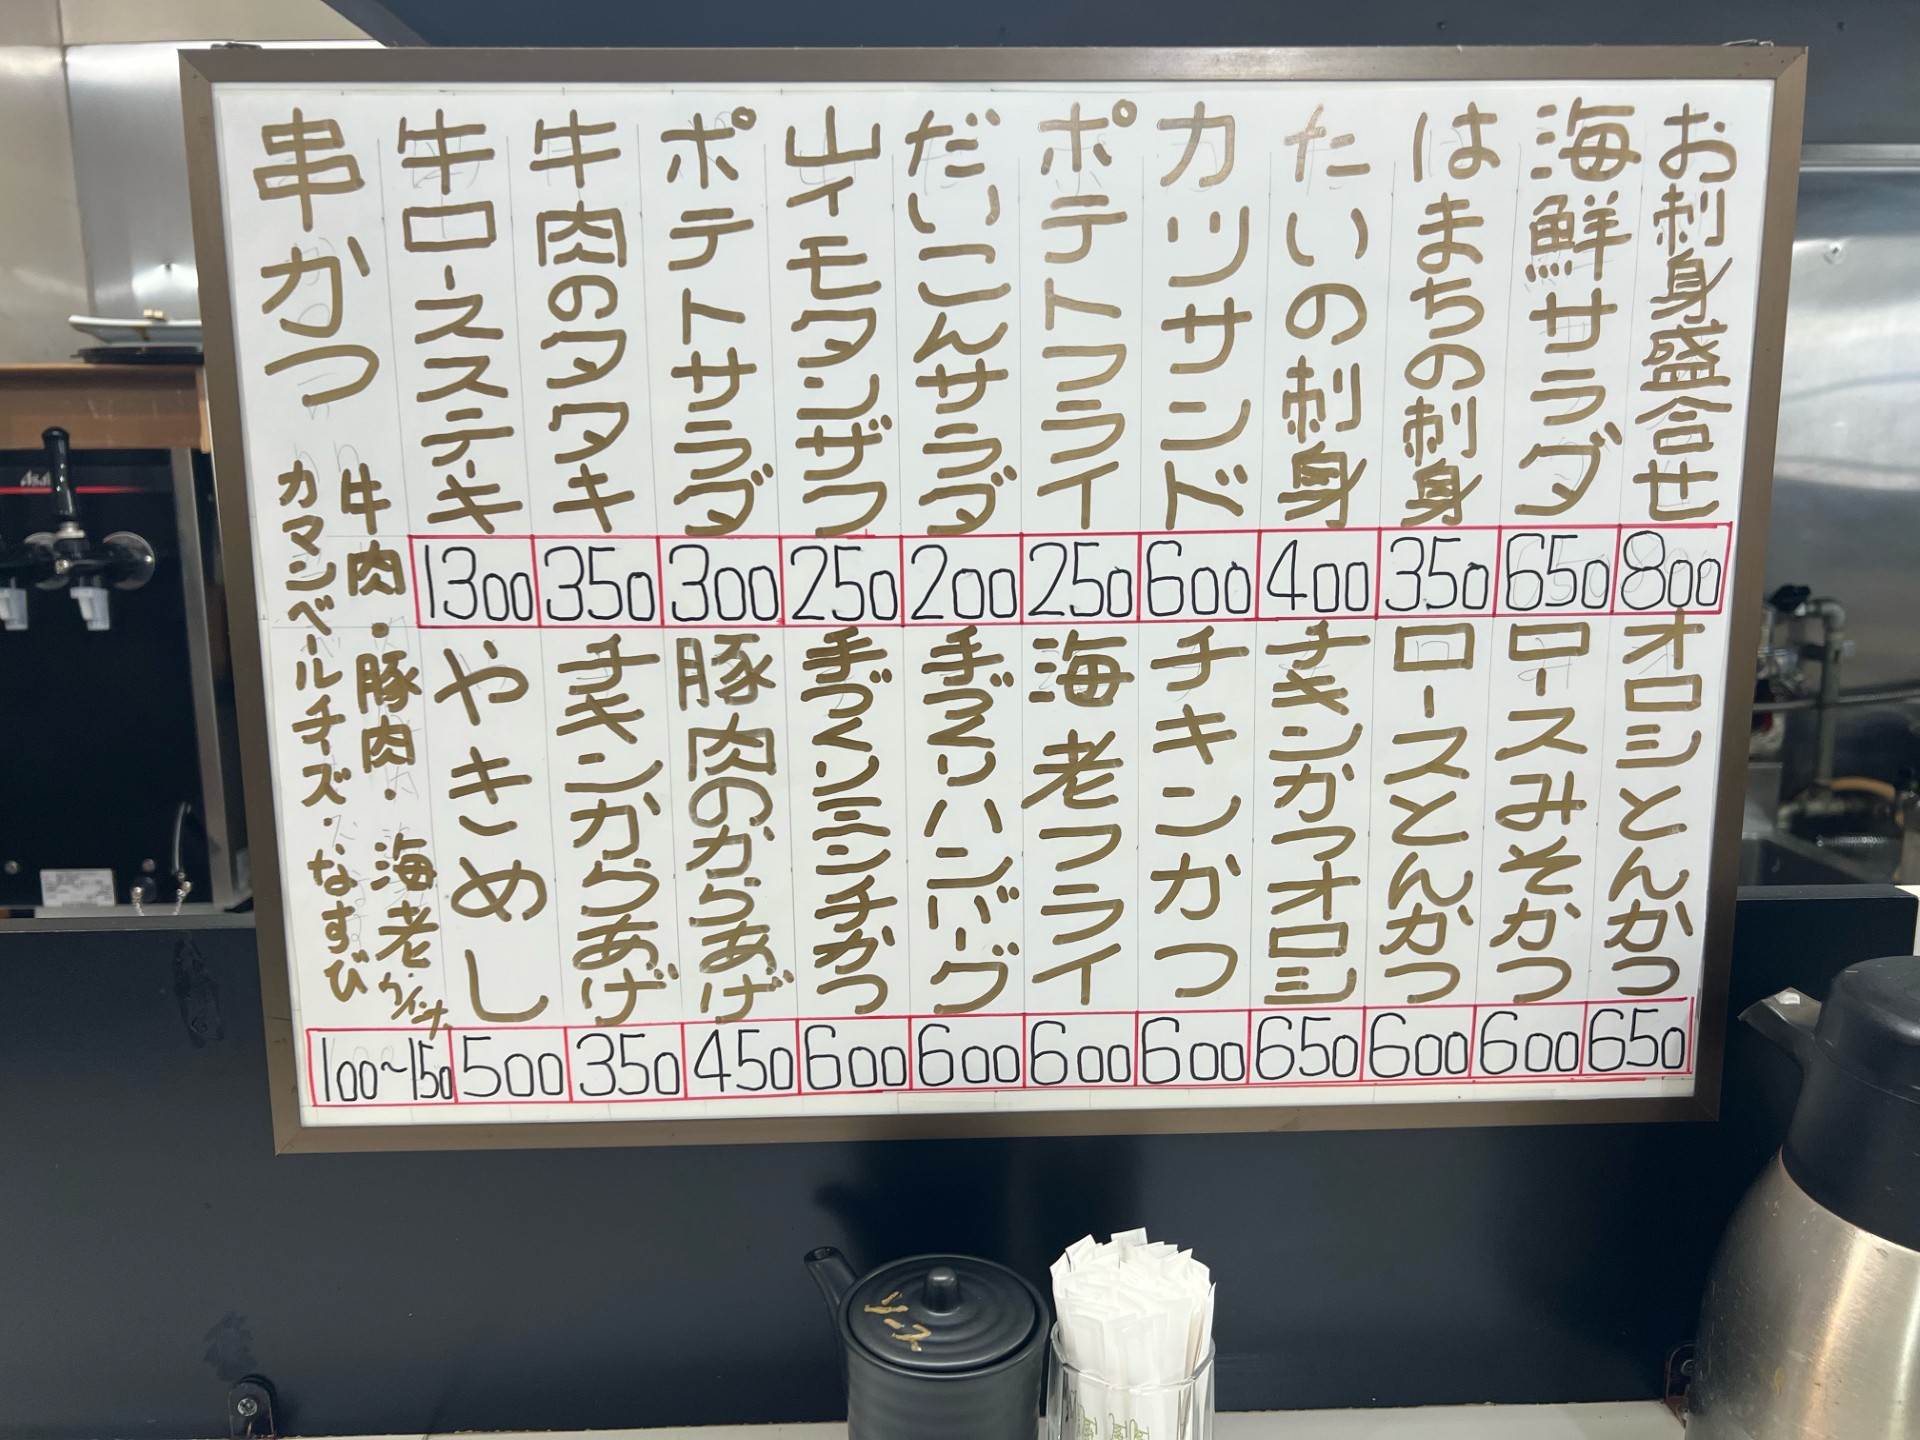 お刺身盛合せ
800
海鮮サラダ
650
はまちの刺身
350
たいの刺身
400
カツサンド
600
ポテトフライ
250
だいこんサラダ
200
山イモタンザク
250
ポテトサラダ
300
牛肉のタタキ
350
牛ロースステーキ
1300
オロシとんかつ
650
ロースみそかつ
600
ロースとんかつ
600
チキンかつオロシ
650
チキンかつ
600
海老フライ
600
手づくりハンバーグ
600
手づくりミンチかつ
600
豚肉のからあげ
450
チキンからあげ
350
やきめし
500
串かつ
牛肉・豚肉・海老・ウインナー
カマンベールチーズ・なすび
100~150
Asahi
ソース